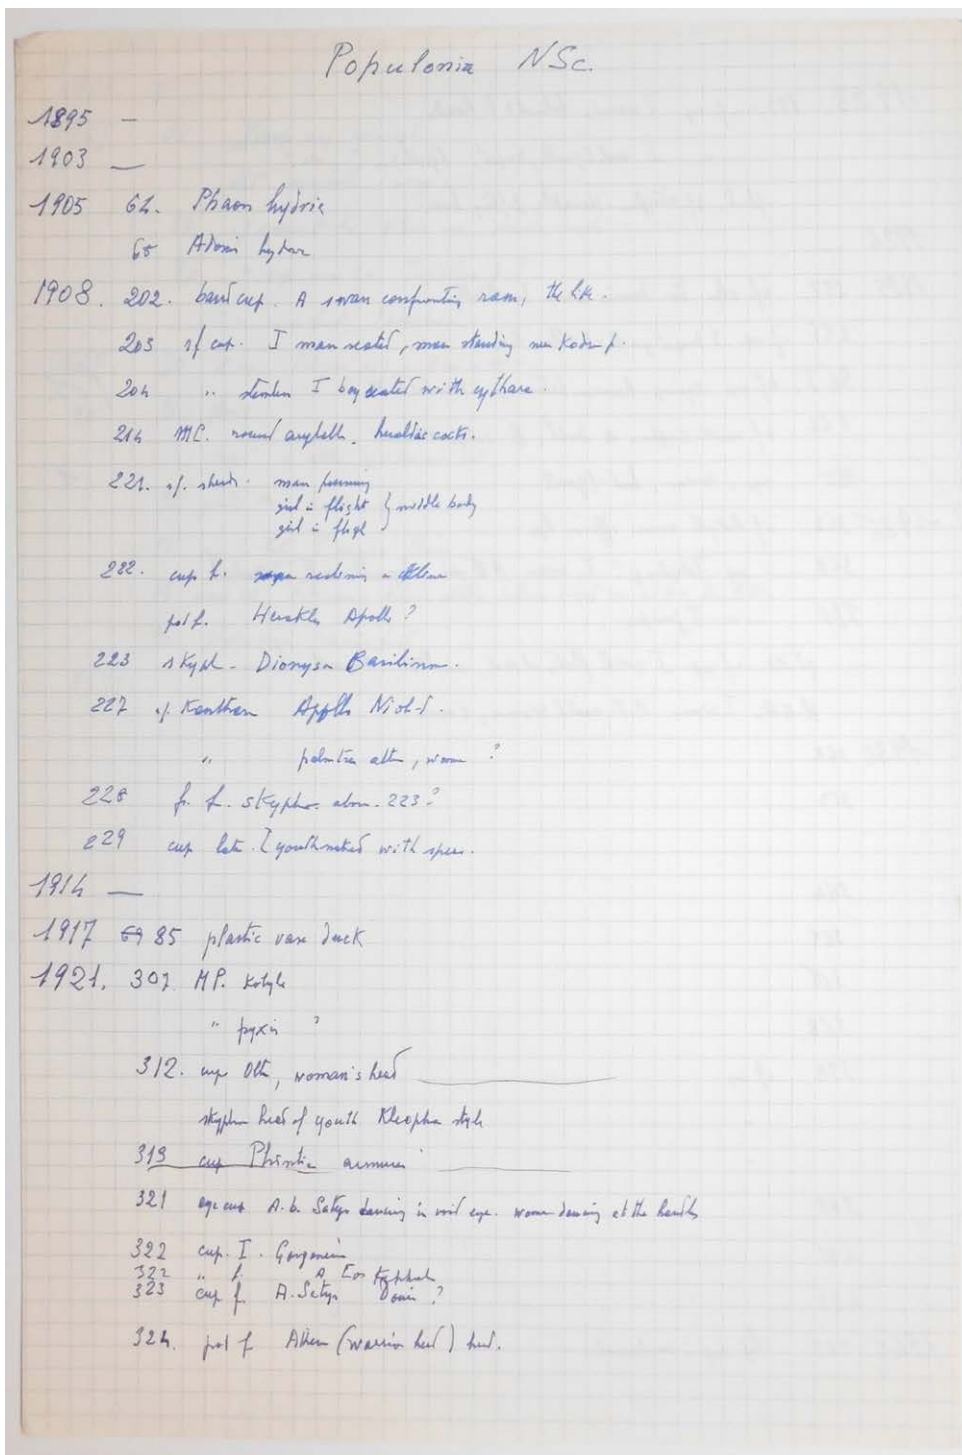 Populonia NSc.
1895 —
1903 —
1905 64. Phaon hydria
65 Adonis hydria
1908. 202. band cup. A swan confronting ram, the like.
203 rf cup. I man seated, man standing
204 " I boy seated with cythara.
214 MC. round aryball. heraldic cocks.
221. rf. sherds. man
girl in flight } middle body
girl in fligh
222. cup f. reclining
pot f. Herakles Apollo ?
223 skyph - Dionysos
227 rf. Kantharos Apollo
" palmtree altar, woman ?
228 fr. f. skyphos. 223 ?
229 cup late. I youth naked with spear.
1914 —
1917 85 plastic vase duck
1921. 307 MP. Kotyle
" pyxis ?
312. cup Olt, woman's head
skyphos head of youth Kleophra style
319 cup Phintia
321 eye cup A.b. Satyr dancing in mid eye. women dancing at the handles
322 cup. I. Gorgoneion
322 " f. A Eos Kephalos
323 cup f. A. Satyr ?
324. pot f Athena (warrior head) head.